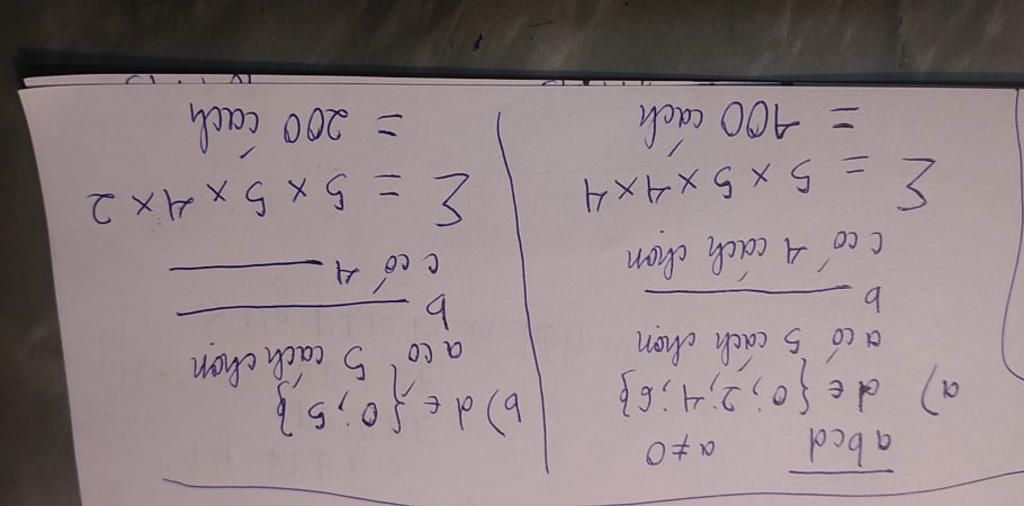 abcd a ≠ 0
a) d ∈ {0; 2; 4; 6}
a có 5 cách chọn
b ______
c có 4 cách chọn
Σ = 5 × 5 × 4 × 4
= 400 cách
b) d ∈ {0; 5}
a có 5 cách chọn
b ______
c có 4 ______
Σ = 5 × 5 × 4 × 2
= 200 cách